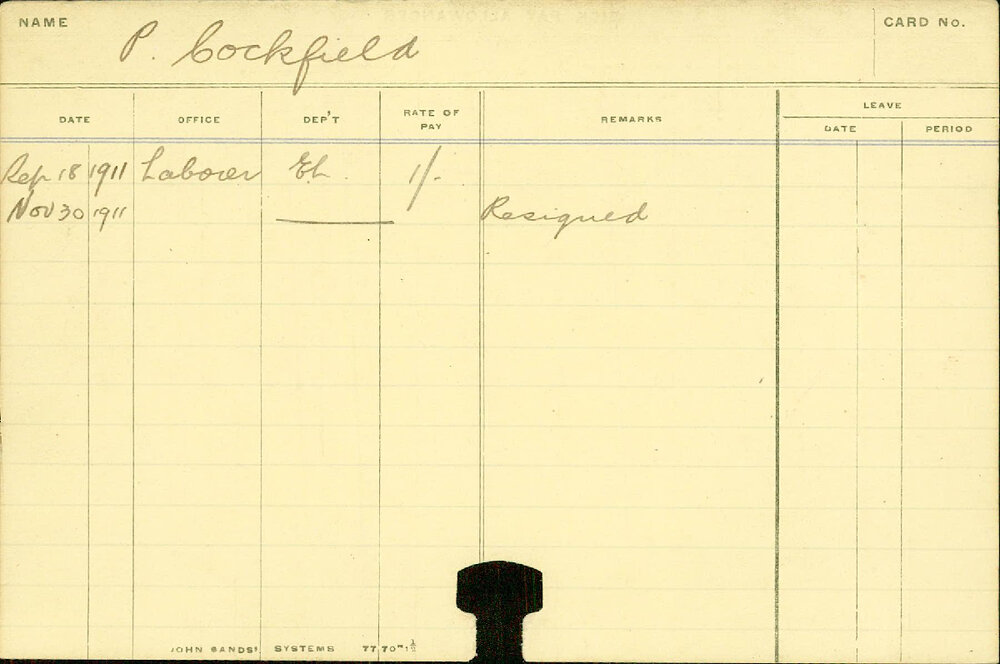 NAME P. Cockfield CARD No.
DATE OFFICE DEP'T RATE OF PAY REMARKS LEAVE
DATE PERIOD
Sep 18 1911 Laborer EL. 1/-
Nov 30 1911 Resigned
JOHN SANDS' SYSTEMS